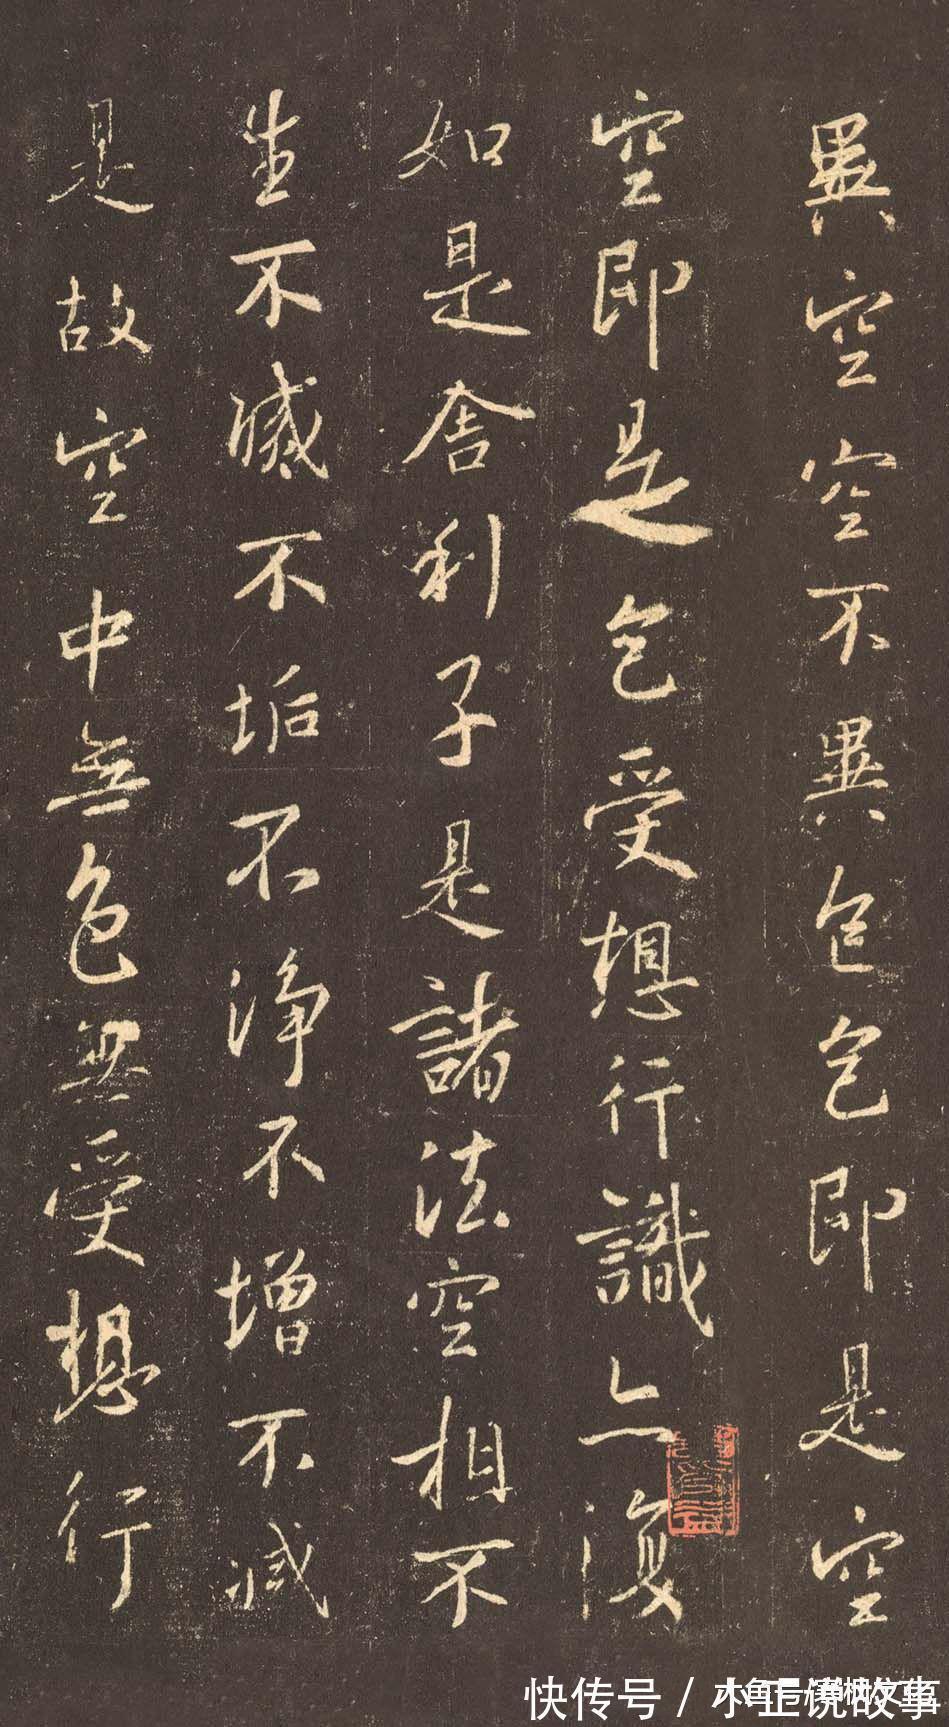 異空空不異色色即是空
空即是色受想行識亦復
如是舍利子是諸法空相不
生不滅不垢不淨不增不減
是故空中無色無受想行
快传号 / 小正说故事